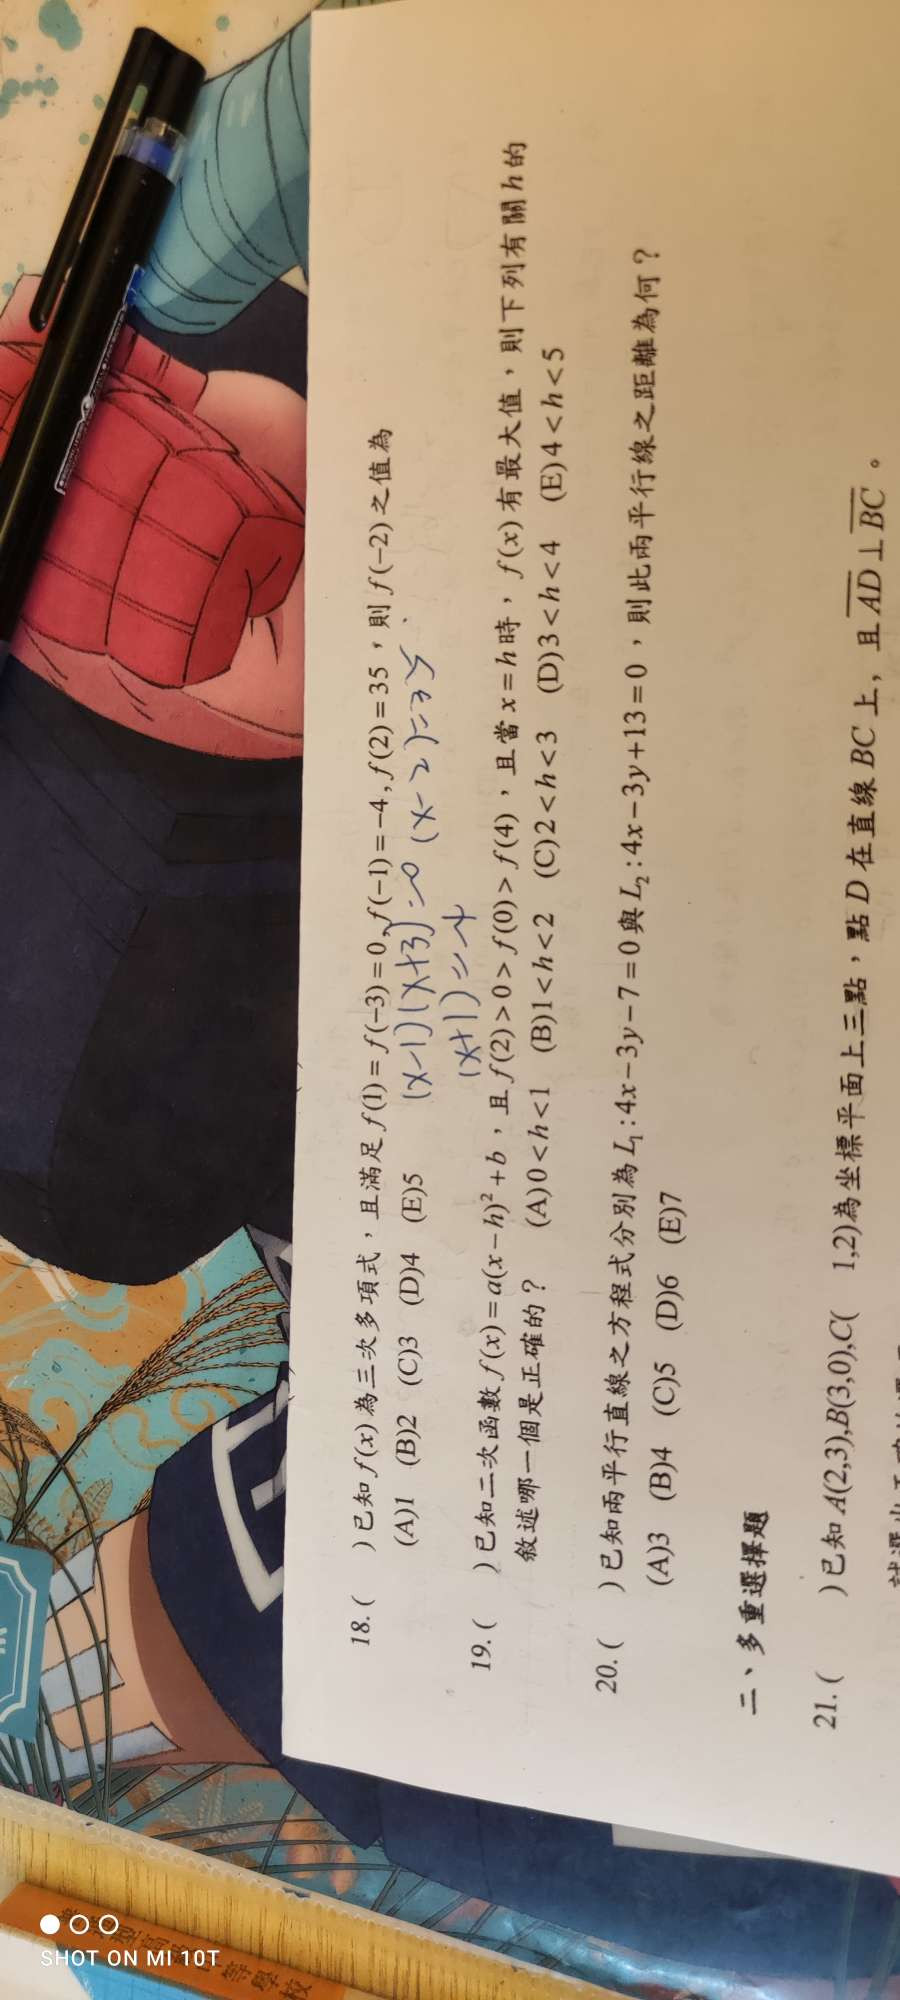 18. (　　) 已知 f(x) 為三次多項式，且滿足 f(1) = f(−3) = 0, f(−1) = −4, f(2) = 35，則 f(−2) 之值為
(A)1 (B)2 (C)3 (D)4 (E)5
(x-1)(x+3)=0 (x-2)=35
(x+1)=-4
19. (　　) 已知二次函數 f(x) = a(x − h)² + b，且 f(2) > 0 > f(0) > f(4)，且當 x = h 時，f(x) 有最大值，則下列有關 h 的
敘述哪一個是正確的？ (A)0 < h < 1 (B)1 < h < 2 (C)2 < h < 3 (D)3 < h < 4 (E)4 < h < 5
20. (　　) 已知兩平行直線之方程式分別為 L₁ : 4x − 3y − 7 = 0 與 L₂ : 4x − 3y + 13 = 0，則此兩平行線之距離為何？
(A)3 (B)4 (C)5 (D)6 (E)7
二、多重選擇題
21. (　　) 已知 A(2,3),B(3,0),C(　1,2)為坐標平面上三點，點 D 在直線 BC 上，且 A̅D̅ ⊥ B̅C̅。
SHOT ON MI 10T